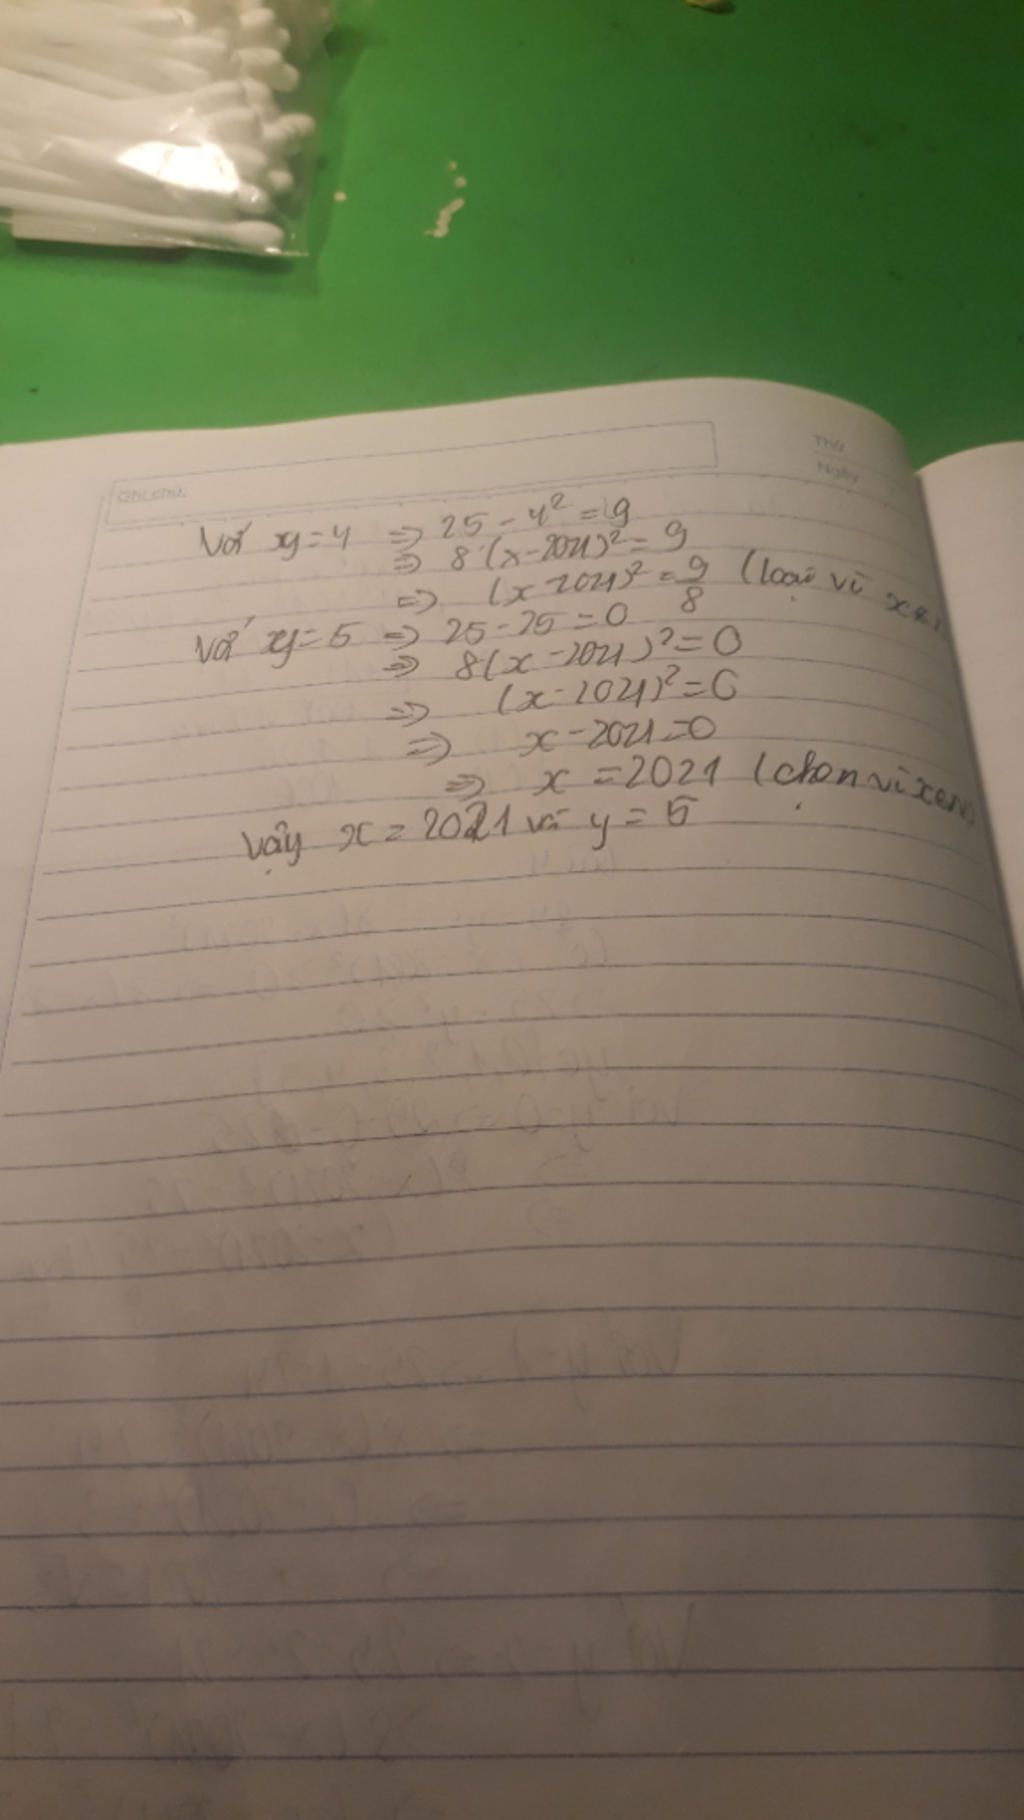 Ghi chú:
Thứ
Ngày
Với y=4 => 25-4²=9
=> 8(x-2021)²=9
=> (x-2021)²=9/8 (loại vì
Với y=5 => 25-25=0
=> 8(x-2021)²=0
=> (x-2021)²=0
=> x-2021=0
=> x=2021 (chọn vì x∈N)
Vậy x=2021 và y=5